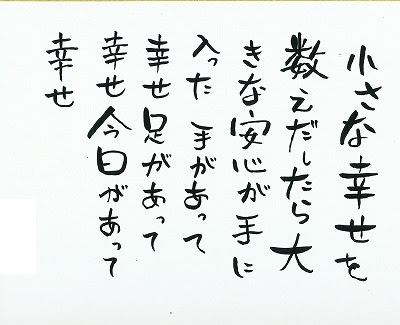 小さな幸せを
数えだしたら大
きな安心が手に
入った 手があって
幸せ 足があって
幸せ 今日があって
幸せ